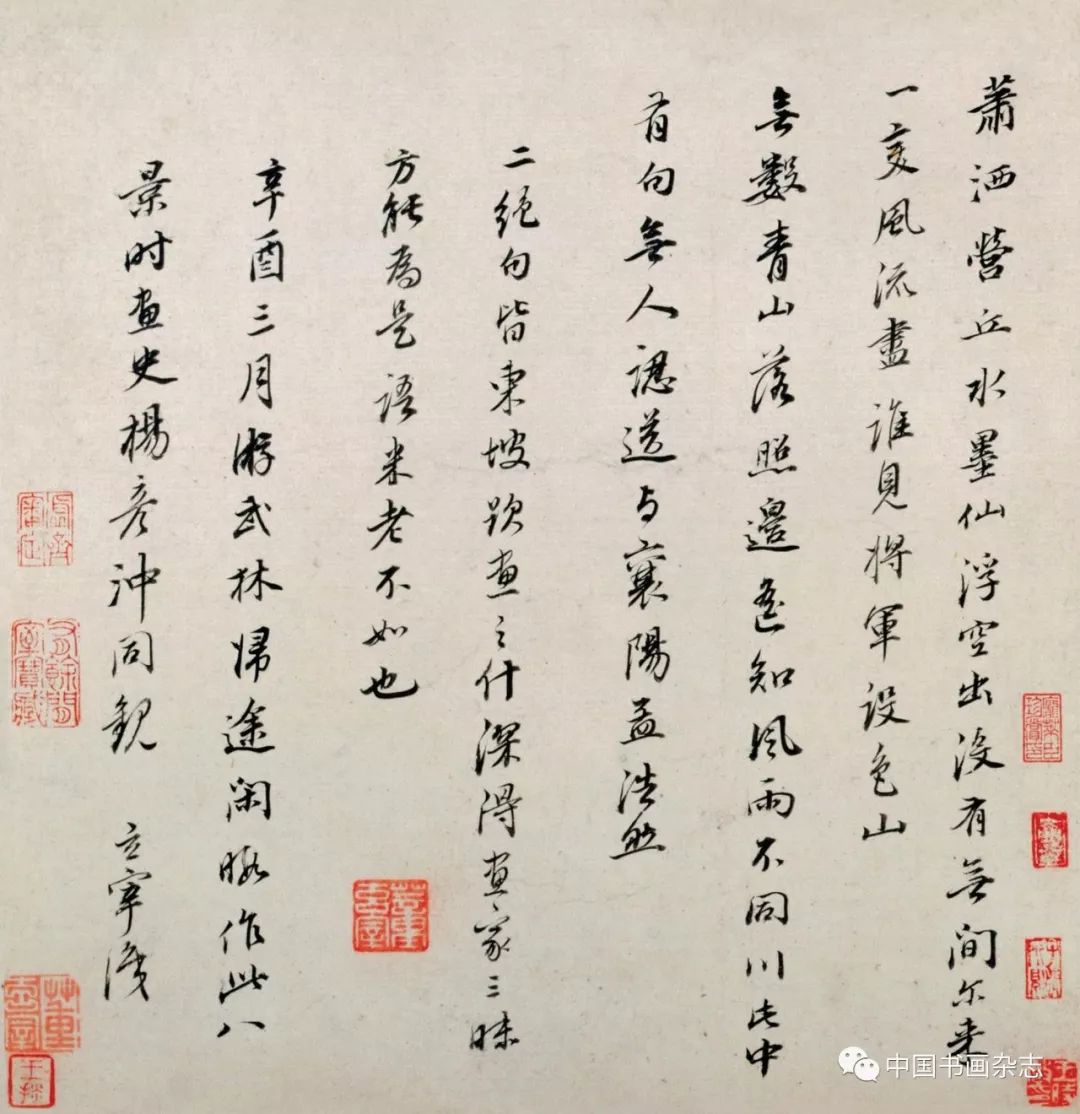 蕭洒營丘水墨仙浮空出沒有無間尔来
一变風流盡誰見將軍設色山
無數青山落照邊遙知風雨不同川此中
有句無人識送与襄陽孟浩然
二絕句皆東坡題畫之什深得畫家三昧
方能為是語米老不如也
辛酉三月游武林歸途闲暇作此八
景时畫史楊彥沖同觀
玄宰識
中国书画杂志